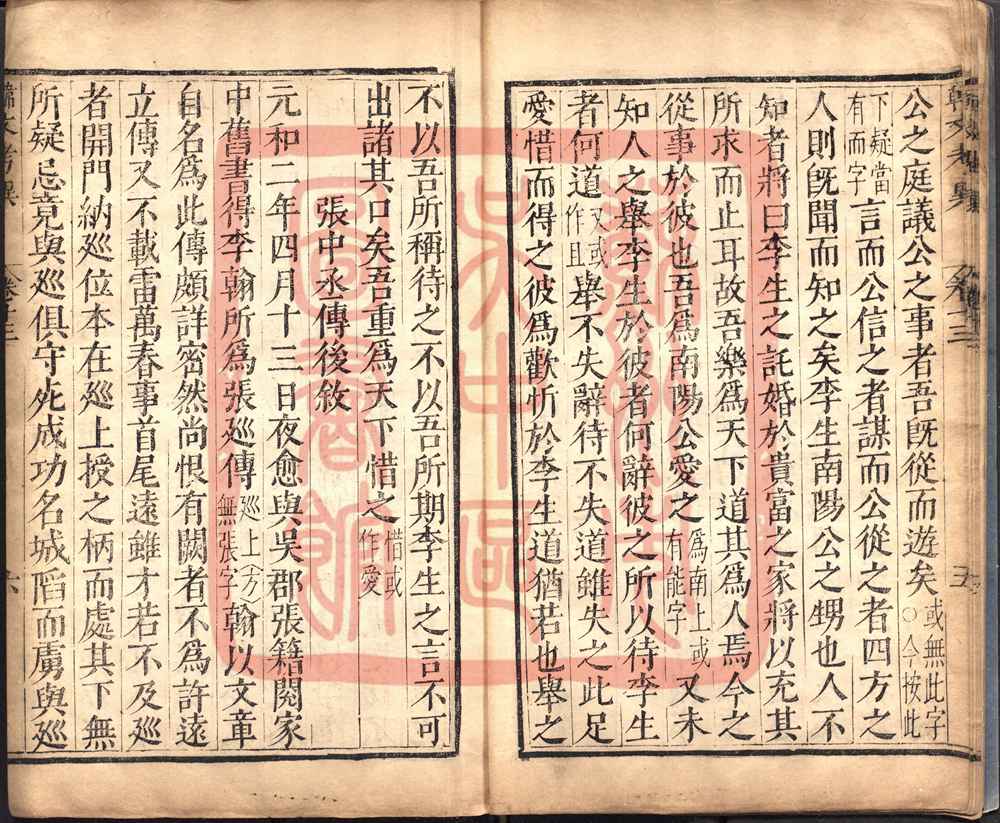 公之庭議公之事者吾既從而遊矣或無此字○今按此
下疑當有而字言而公信之者謀而公從之者四方之
人則既聞而知之矣李生南陽公之甥也人不
知者將曰李生之託婚於貴富之家將以充其
所求而止耳故吾樂為天下道其為人焉今之
從事於彼也吾為南陽公愛之為南上或有能字又未
知人之舉李生於彼者何辭彼之所以待李生
者何道又或作且舉不失辭待不失道雖失之此足
愛惜而得之彼為歡忻於李生道猶若也舉之
五
不以吾所稱待之不以吾所期李生之言不可
出諸其口矣吾重為天下惜之惜或作愛
張中丞傳後敘
元和二年四月十三日夜愈與吳郡張籍閱家
中舊書得李翰所為張廵傳廵上(方)無張字翰以文章
自名為此傳頗詳密然尚恨有闕者不為許遠
立傳又不載雷萬春事首尾遠雖才若不及廵
者開門納廵位本在廵上授之柄而處其下無
所疑忌竟與廵俱守死成功名城陷而虜與廵
卷十三
六